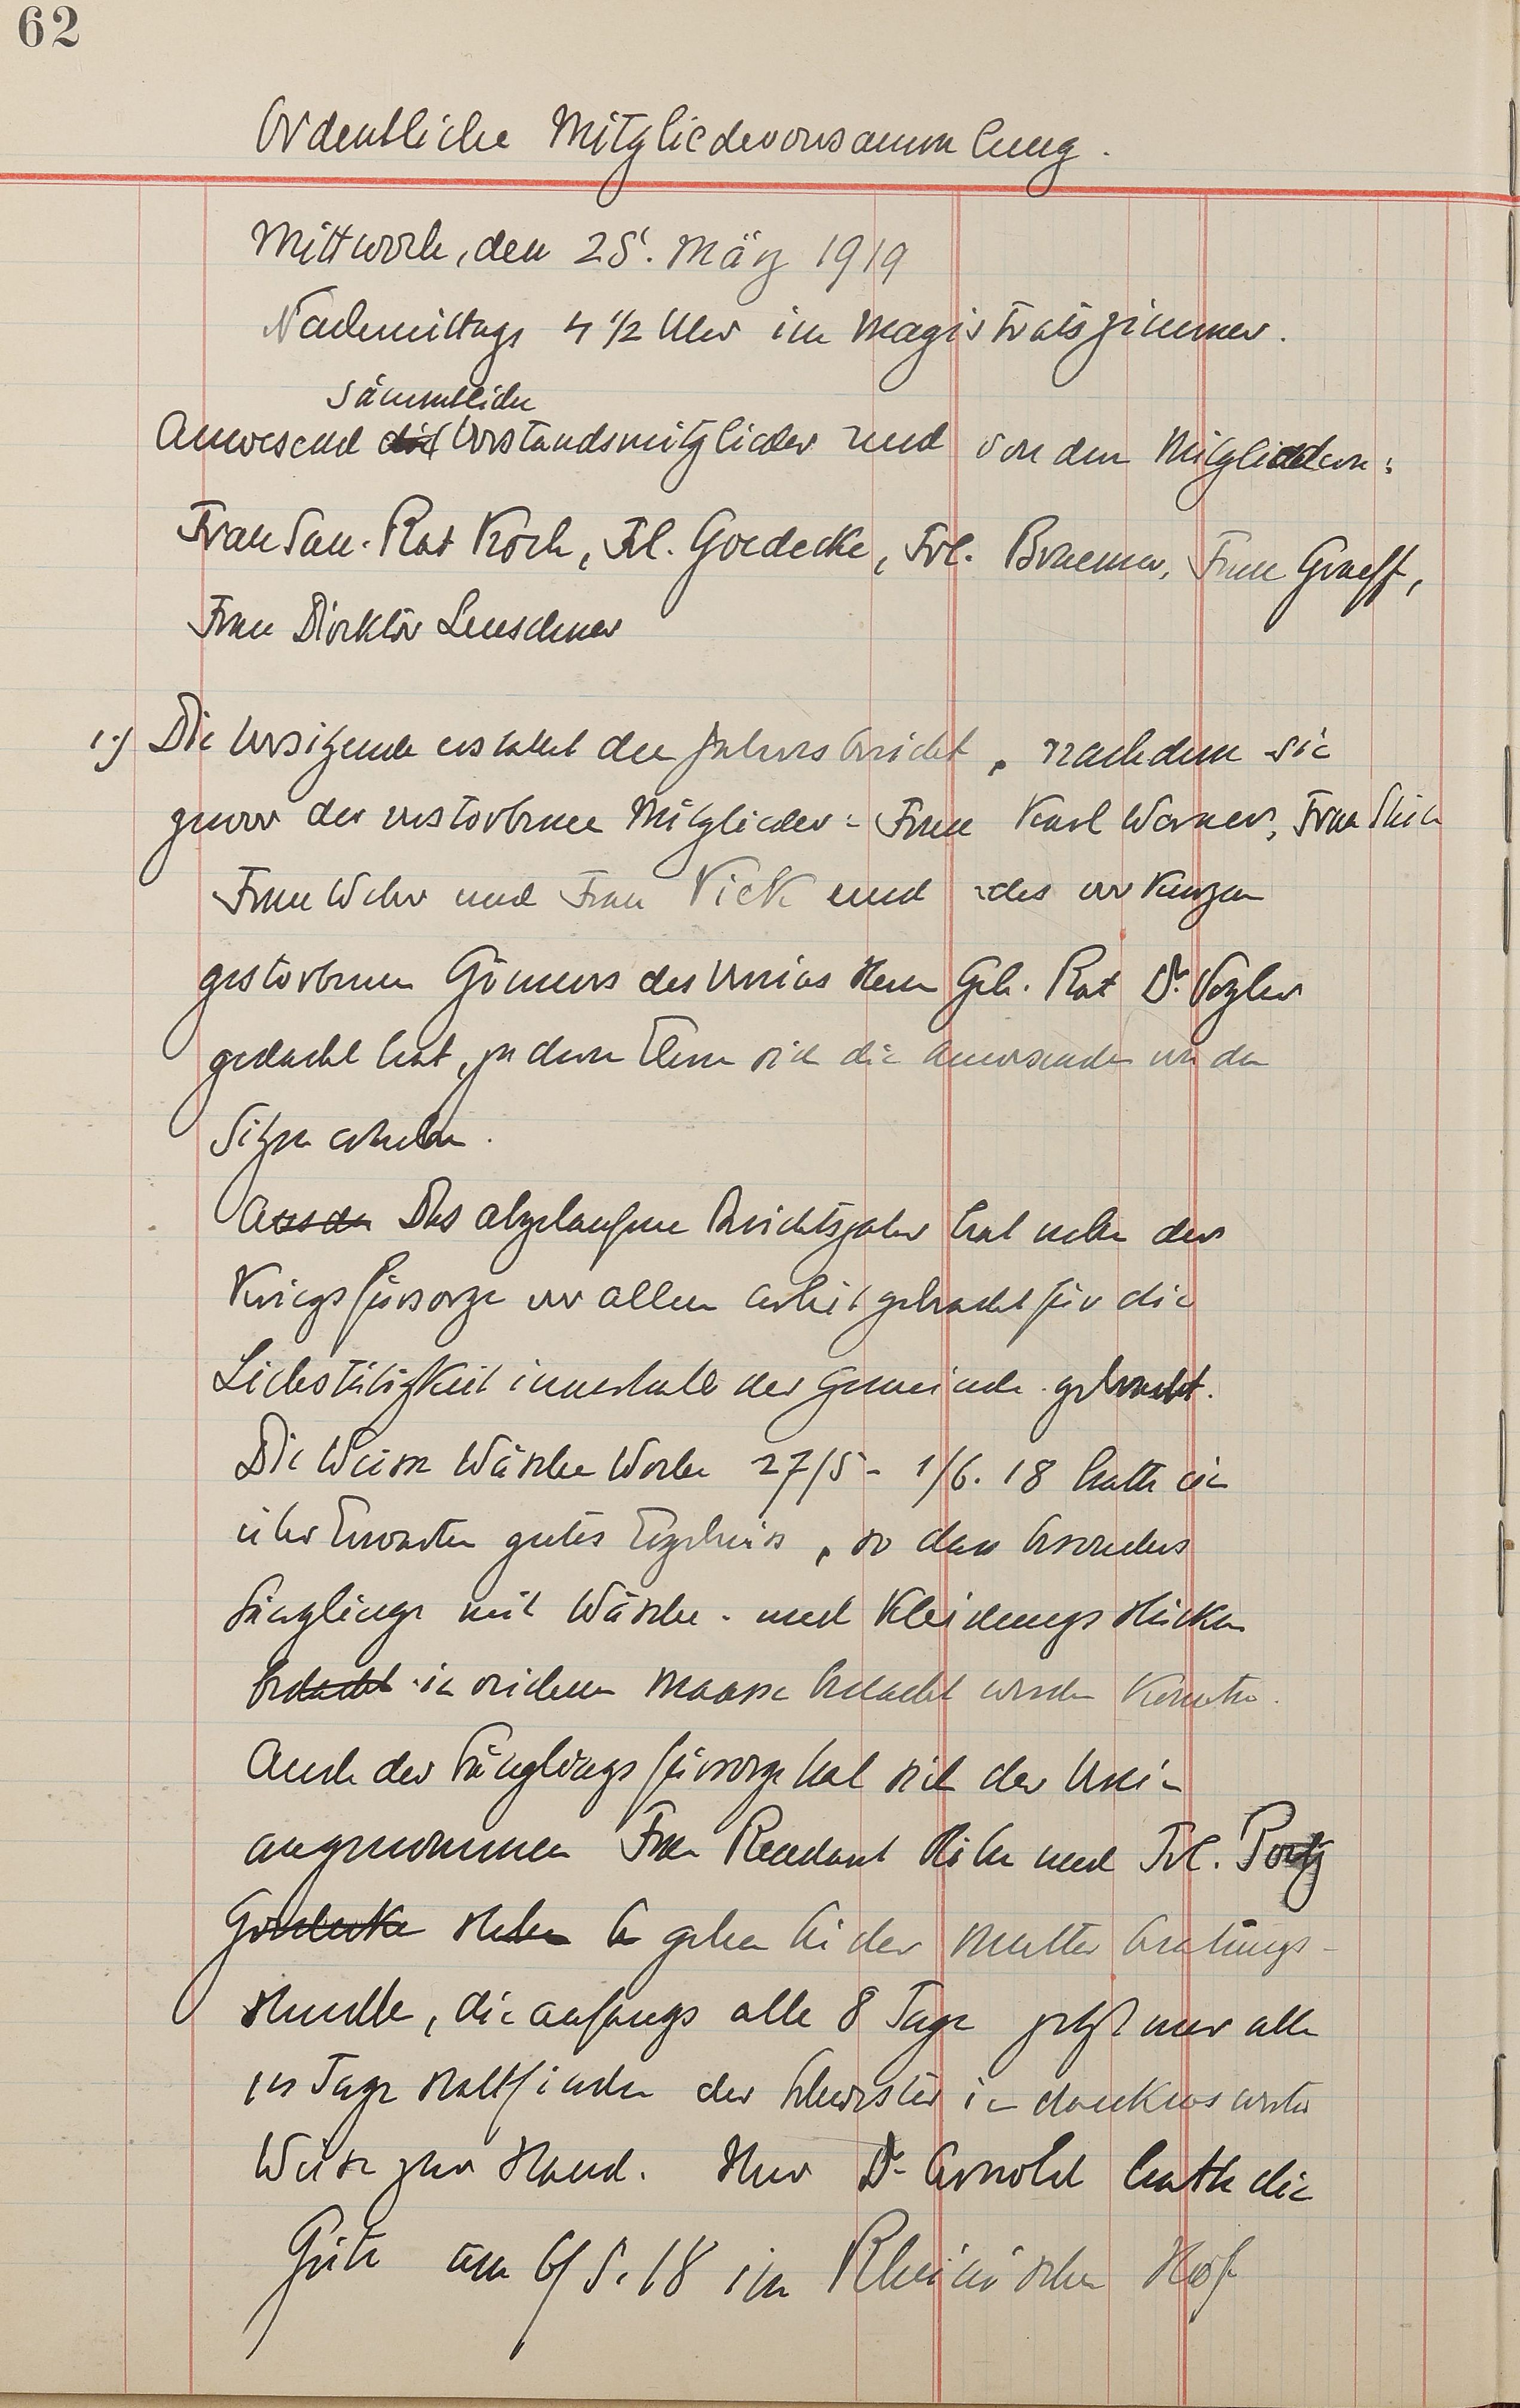 62
Ordentliche Mitgliederversammlung.
Mittwoch, den 25. März 1919
Nachmittags 4 1/2 Uhr im Magistratszimmer.
sämmtliche
Anwesend die Vorstandsmitglieder und von den Mitgliedern:
Frau San. Rat Koch, Frl. Goedecke, Frl. Braemer, Frau Graeff,
Frau Direktor Leuschner
1.) Die Vorsitzende erstattet den Jahresbericht, nachdem sie
zuvor der verstorbenen Mitglieder: Frau Karl Werner, Frau
Frau Wehr und Frau Vick und des vor kurzem
gestorbenen Gönners des Vereins Herrn Geh. Rat Dr. Vogler
gedacht hat, zu deren Ehren sich die Anwesenden von den
Sitzen erheben.
Aus der Das abgelaufene Berichtsjahr hat neben der
Kriegsfürsorge vor allem Arbeit gebracht für die
Liebestätigkeit innerhalb der Gemeinde gebracht.
Die Weisse Wäsche Woche 27/5 - 1/6. 18 hatte ein
über Erwarten gutes Ergebniss, so dass besonders
Säuglinge mit Wäsche- und Kleidungsstücken
bedacht in reichem Maasse bedacht werden konnten.
Auch der Säuglingsfürsorge hat sich der Verein
angenommen Frau Rendant und Frl.
Goedecke stehen gehen bei der Mutterberatungs-
stunde, die anfangs alle 8 Tage jetzt nur alle
14 Tage stattfinden der Schwester in dankenswerter
Weise zur Hand. Herr Dr. Arnold hatte die
Güte am 6/5. 18 im Rheinischen Hof